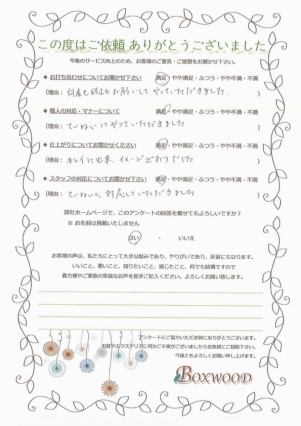 この度はご依頼 ありがとうございました
今後のサービス向上のため、お客様のご意見・ご感想をお聞かせ下さい。
◆ お打ち合わせについてお聞かせ下さい　満足・やや満足・ふつう・やや不満・不満
(理由： 何度も修正をお願いして やっていただきました )
◆ 職人の対応・マナーについて　満足・やや満足・ふつう・やや不満・不満
(理由： ていねいにやっていただきました )
◆ 仕上がりについてお聞かせください　満足・やや満足・ふつう・やや不満・不満
(理由： キレイに出来、イメージどおりでした )
◆ スタッフの対応についてお聞かせ下さい　満足・やや満足・ふつう・やや不満・不満
(理由： ていねいに対応していただきました )
弊社ホームページで、このアンケートの回答を載せてもよろしいですか？
※ お名前は掲載いたしません
はい ・ いいえ
お客様の声は、私たちにとって大きな励みであり、やりがいであり、活力になります。
いいこと、悪いこと、知りたいこと、感じたこと、何でも結構ですので
貴方様やご家族の率直なお声を是非ご記入ください。よろしくお願い致します。
アンケートにご協力いただき誠にありがとうございます。
お庭やエクステリアに何かご不便がございましたらお気軽にご相談下さい。
今後ともよろしくお願い申し上げます。
BOXWOOD